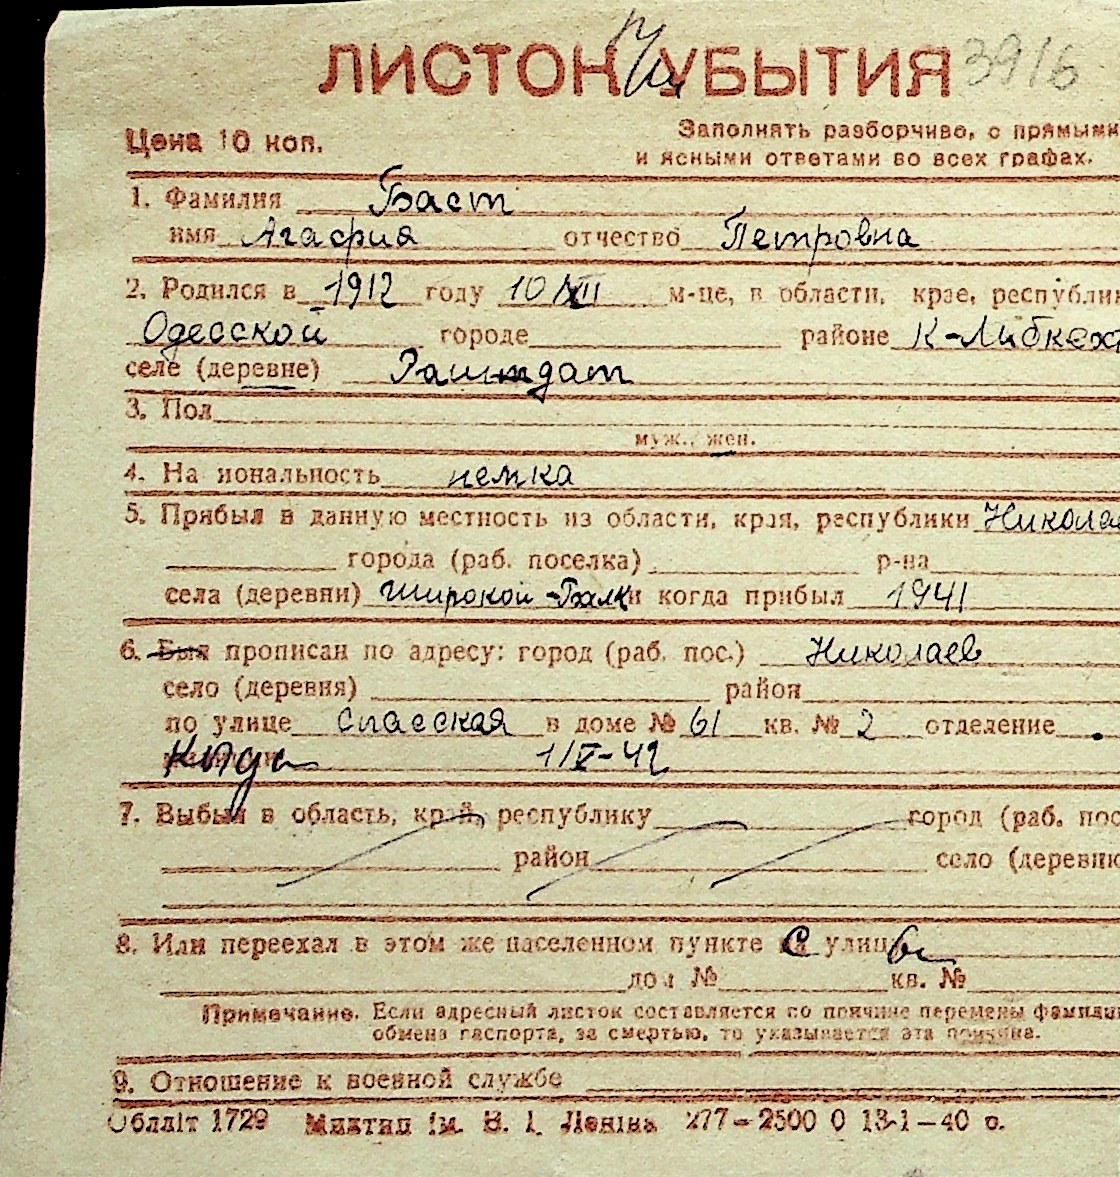 ЛИСТОК УБЫТИЯ 3916
Цена 10 коп.
Заполнять разборчиво, с прямыми
и ясными ответами во всех графах.
1. Фамилия Баст
имя Агафия отчество Петровна
2. Родился в 1912 году 10/XII м-це, в области, крае, республик
Одесской городе районе К-Либкехт
селе (деревне) Раштдат
3. Пол
муж., жен.
4. На иональность немка
5. Прибыл в данную местность из области, края, республики Николае
города (раб. поселка) р-на
села (деревни) Широкой Балки когда прибыл 1941
6. Был прописан по адресу: город (раб. пос.) Николаев
село (деревня) район
по улице Спасская в доме № 61 кв. № 2 отделение
Куда 1/V-42
7. Выбыл в область, край, республику город (раб. пос
район село (деревню
8. Или переехал в этом же населенном пункте С улицы
дом № кв. №
Примечание. Если адресный листок составляется по причине перемены фамилии
обмена паспорта, за смертью, то указывается эта причина.
9. Отношение к военной службе
Облліт 1729 Миктип ім. В. І. Леніна 277-2500 0 13-1-40 о.